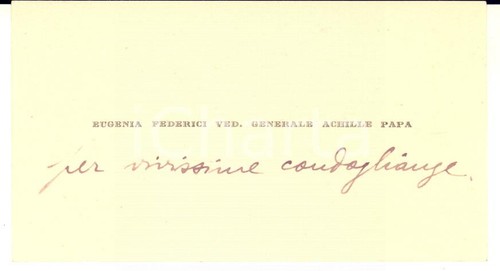 EUGENIA FEDERICI VED. GENERALE ACHILLE PAPA
per vivissime condoglianze.